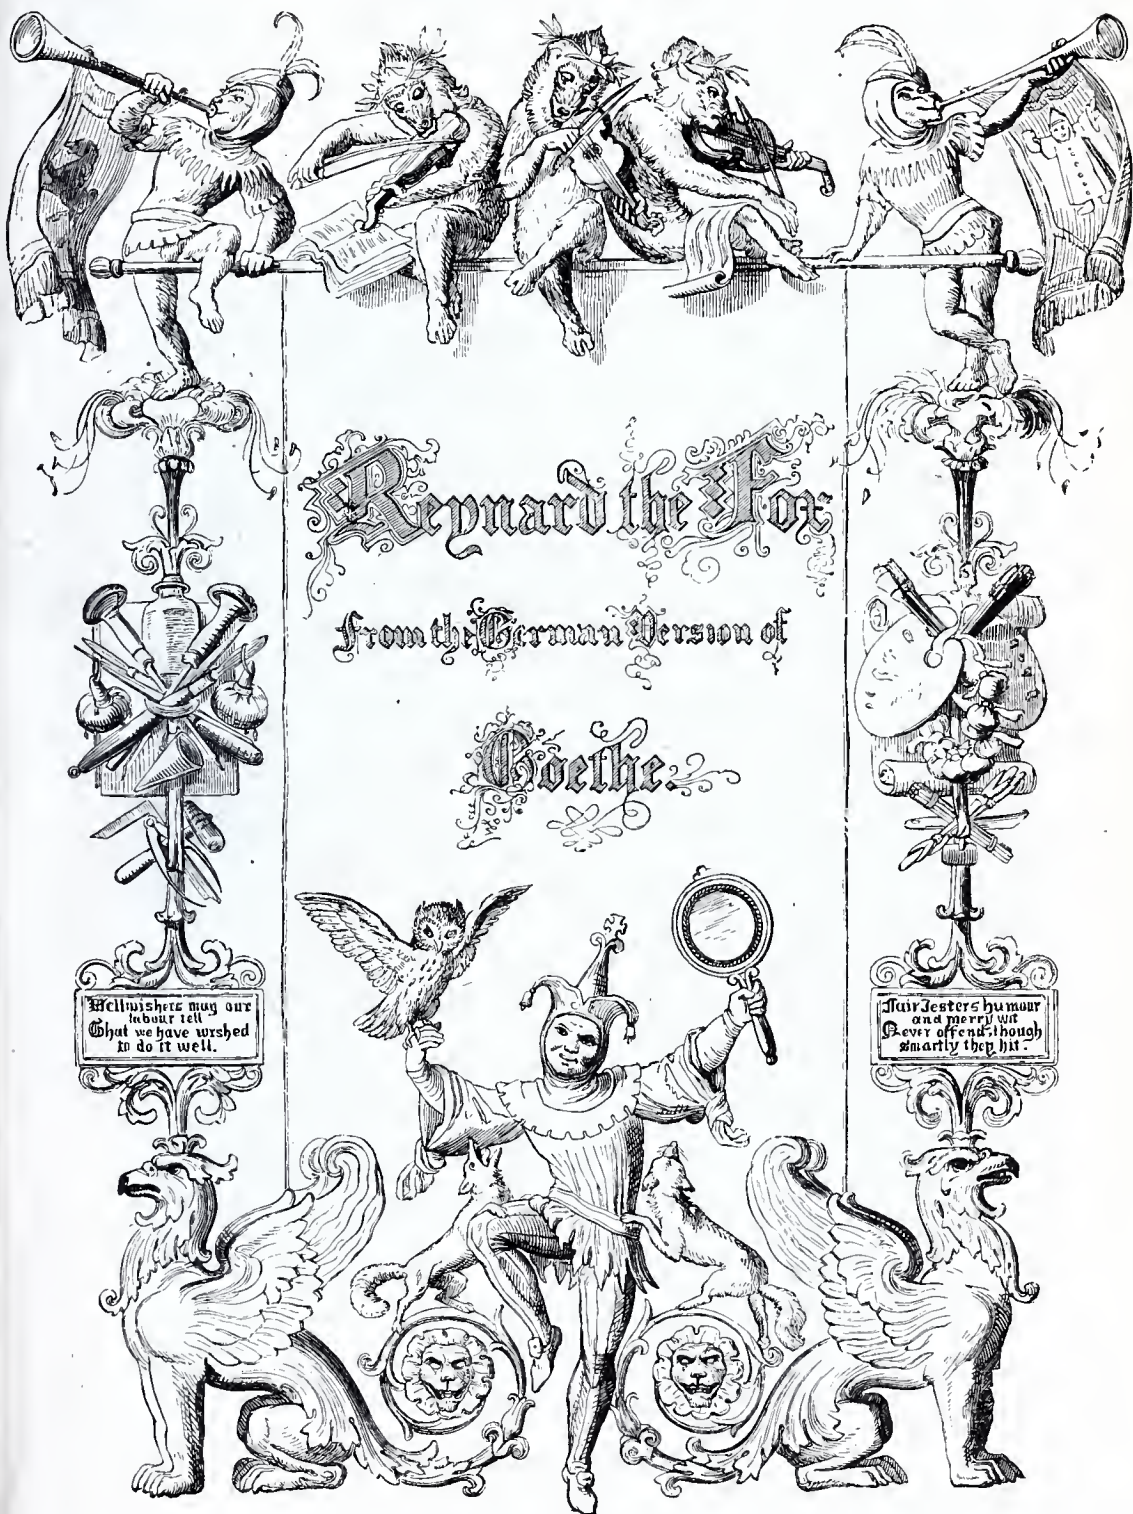 Reynard the Fox
from the German Version of
Goethe.
Wellwishers may our
labour tell
That we have wished
to do it well.
Fair Jesters humour
and merry wit
Never offend, though
smartly they hit.